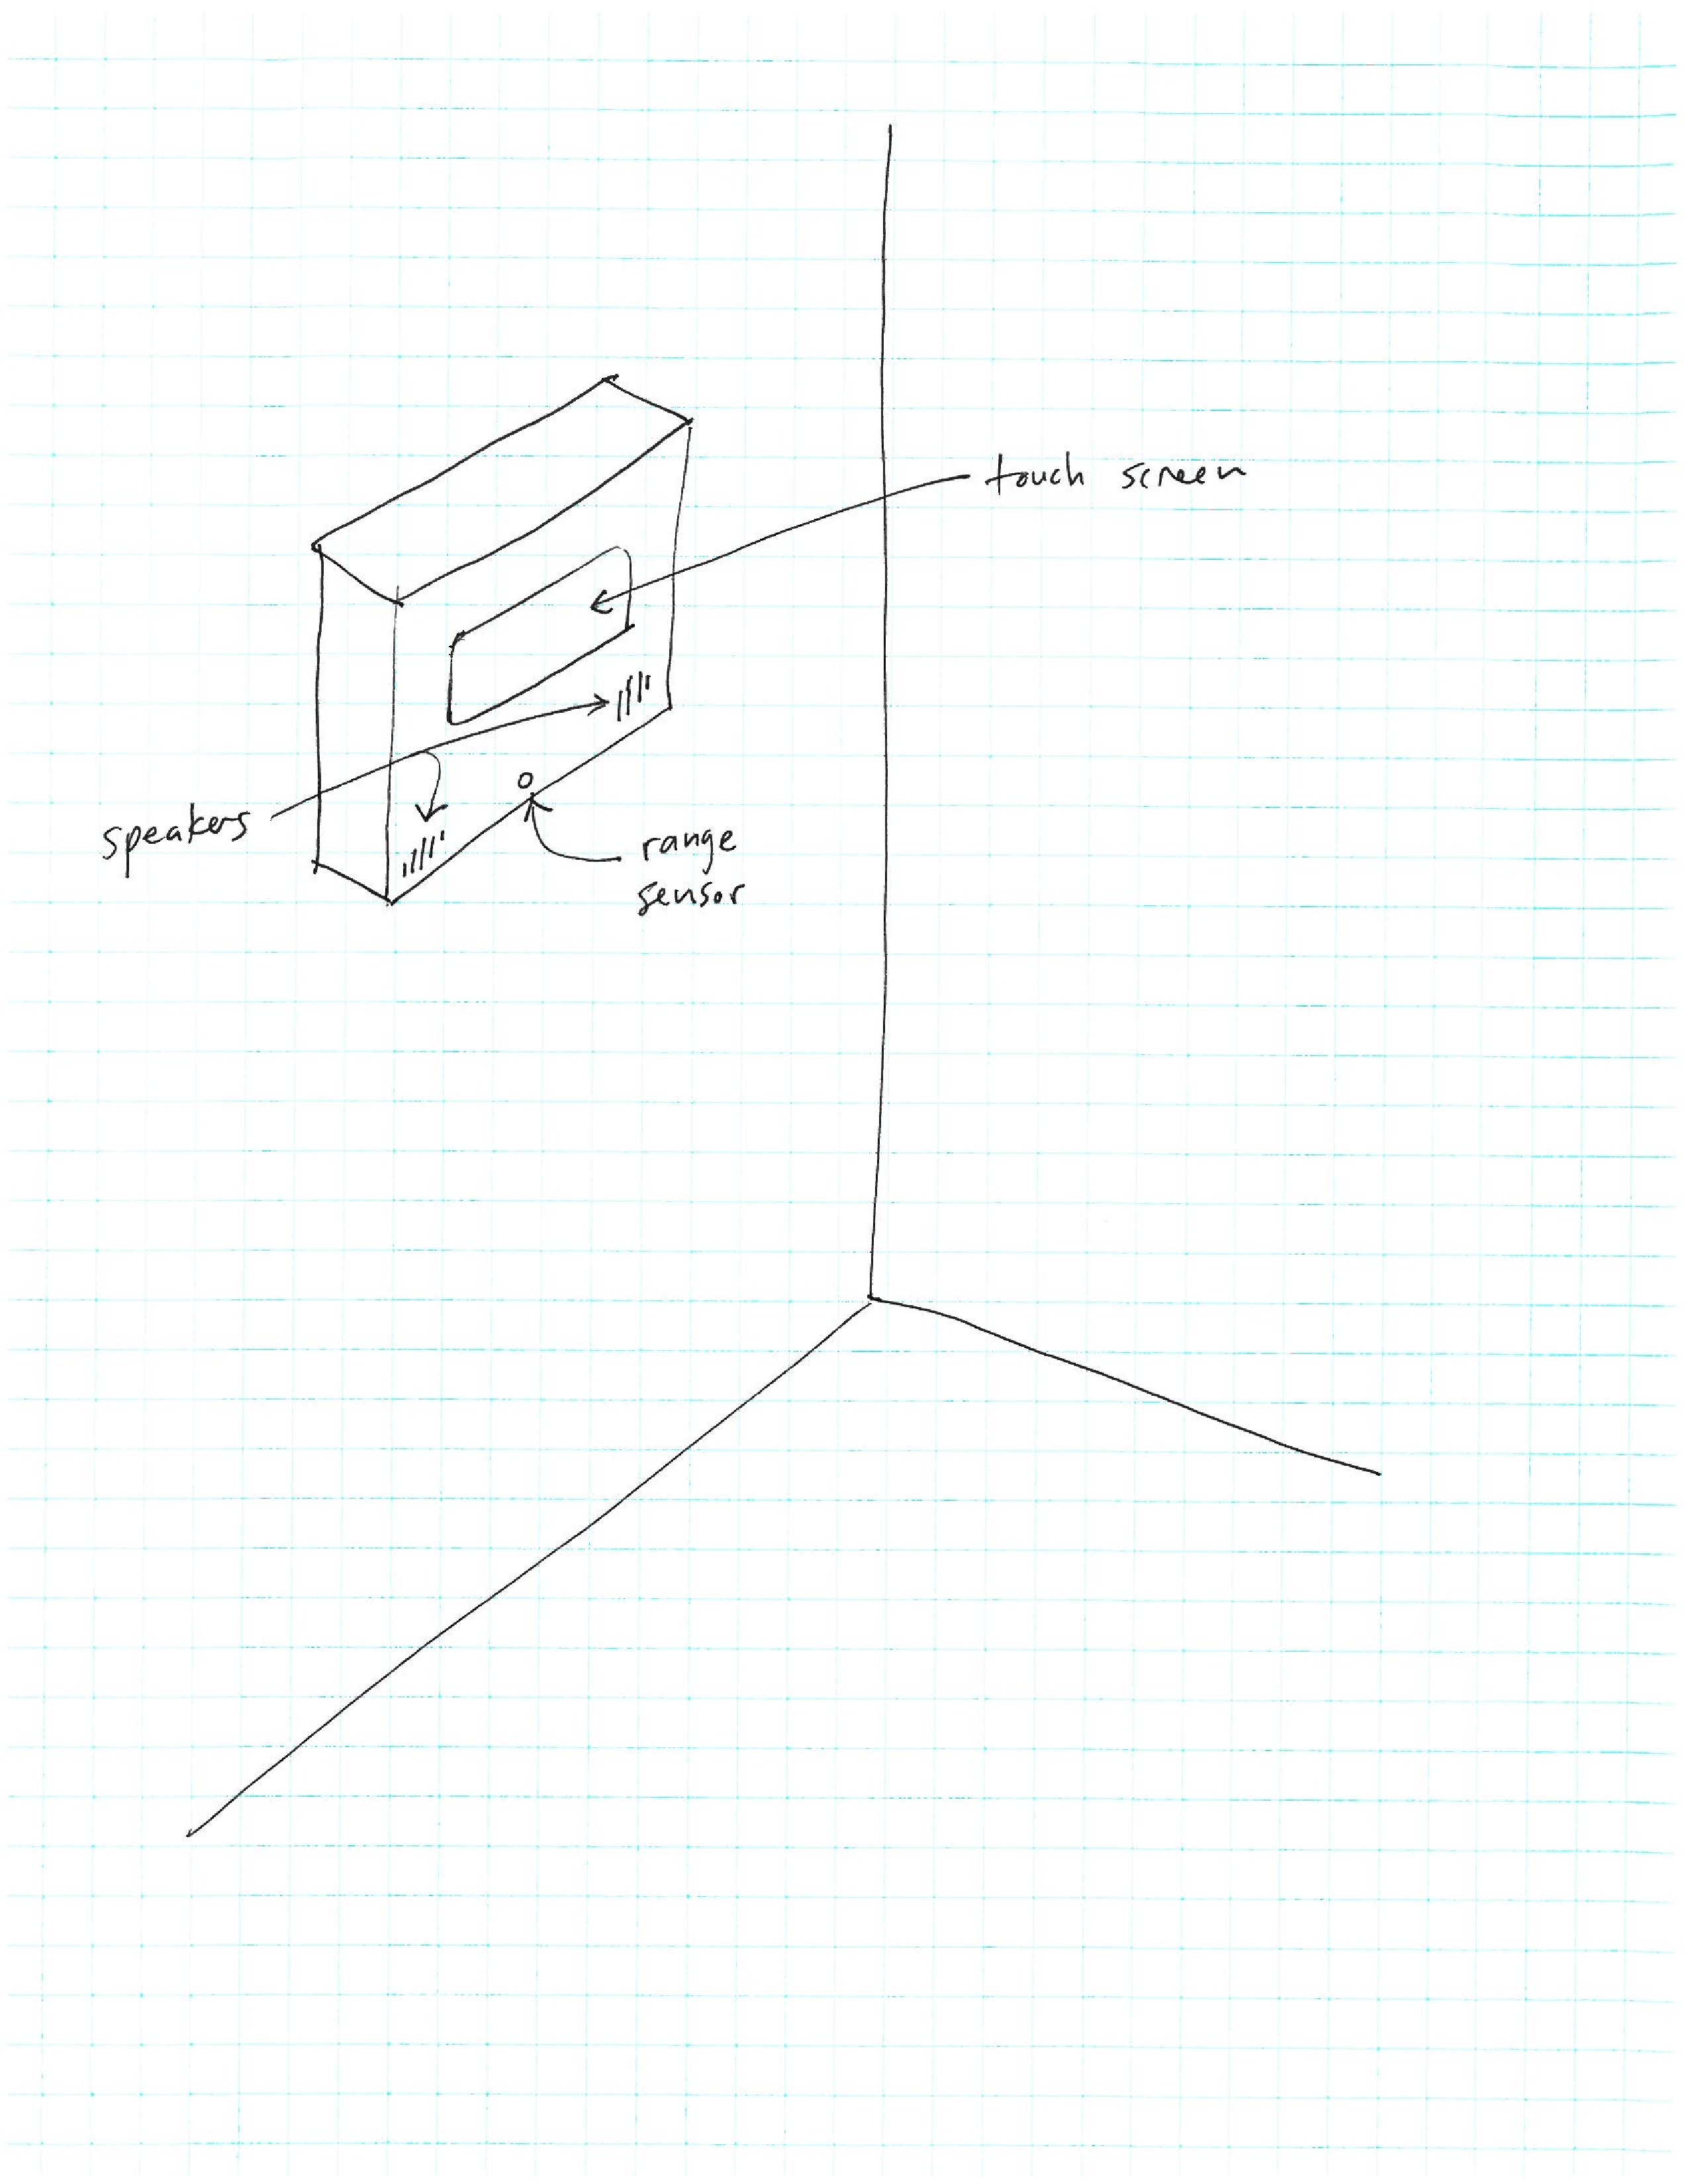 touch screen
speakers
range
sensor